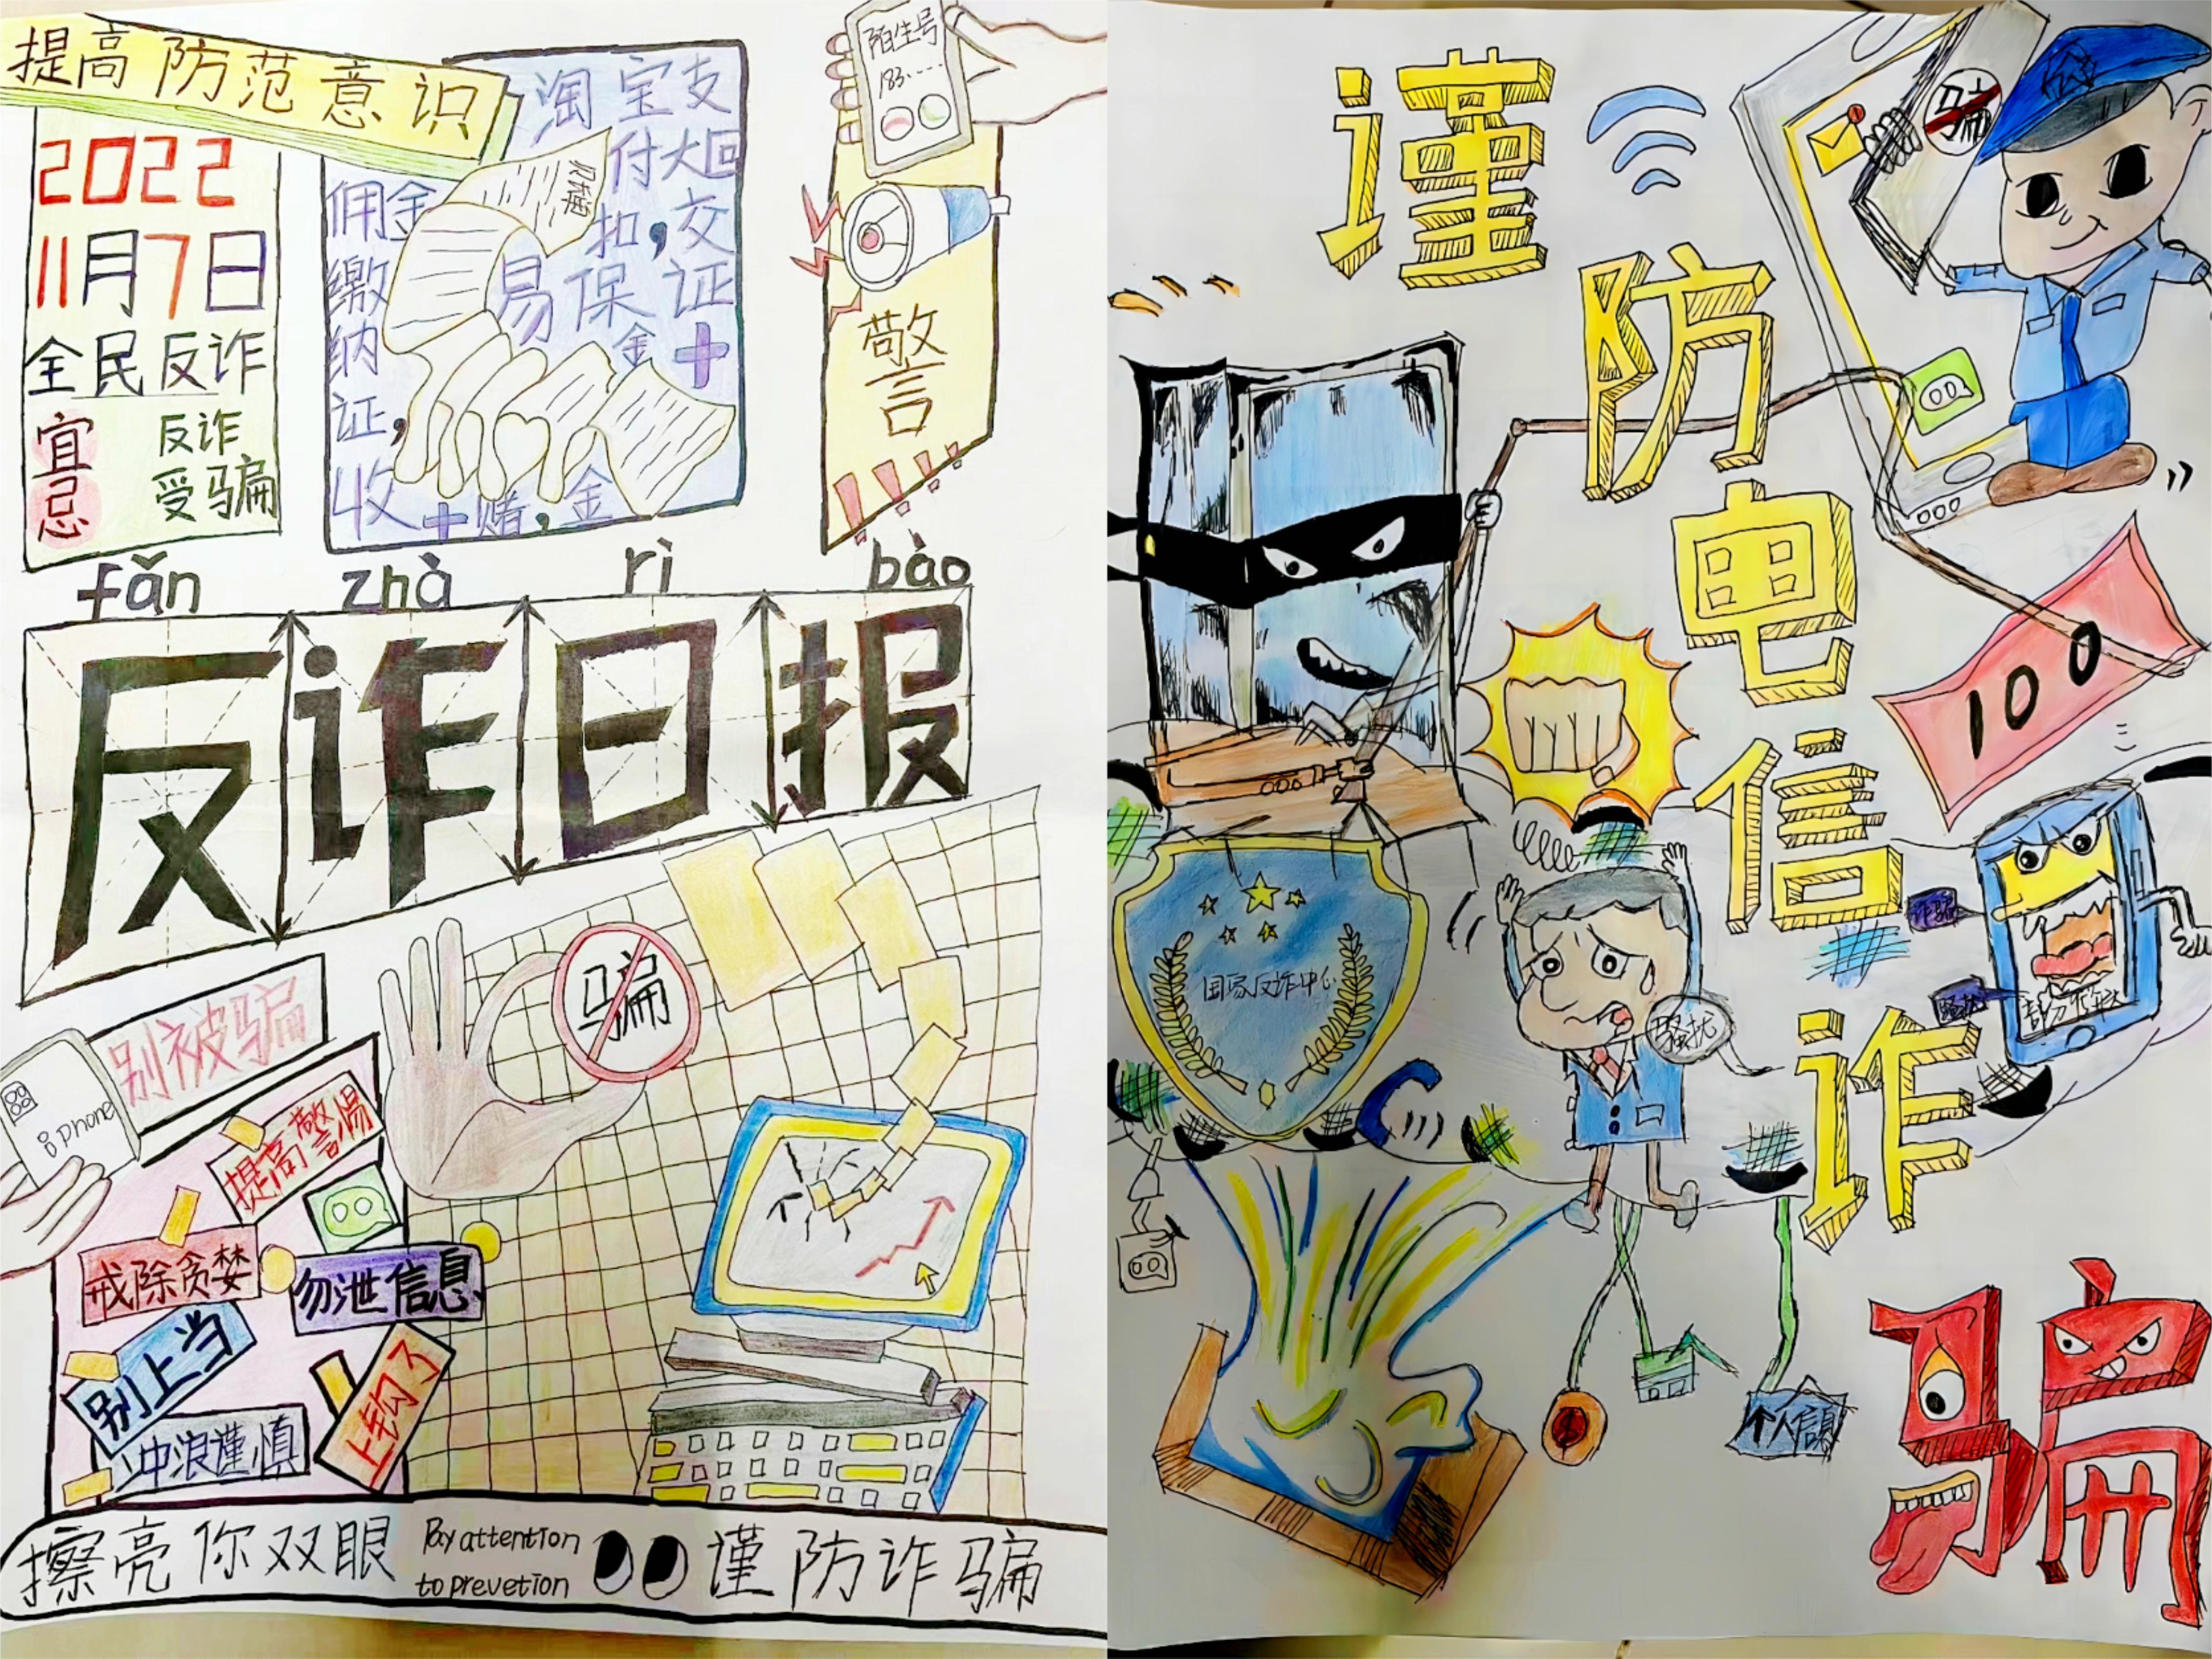 提高防范意识
2022
11月7日
全民反诈
宜 反诈
忌 受骗
淘宝支
付大回
扣，交
易保证
金+
佣金
缴
纳
证，
收
+赌，金
陌生号
183·····
警
言
fǎn zhà rì bào
反诈日报
别被骗
骗
iphone
提高警惕
戒除贪婪
勿泄信息
别上当
上钩了
冲浪谨慎
擦亮你双眼
Pay attention
to prevetion
谨防诈骗
谨防电信诈骗
骗
100
国家反诈中心
诈骗
骚扰
骚扰
个人信息